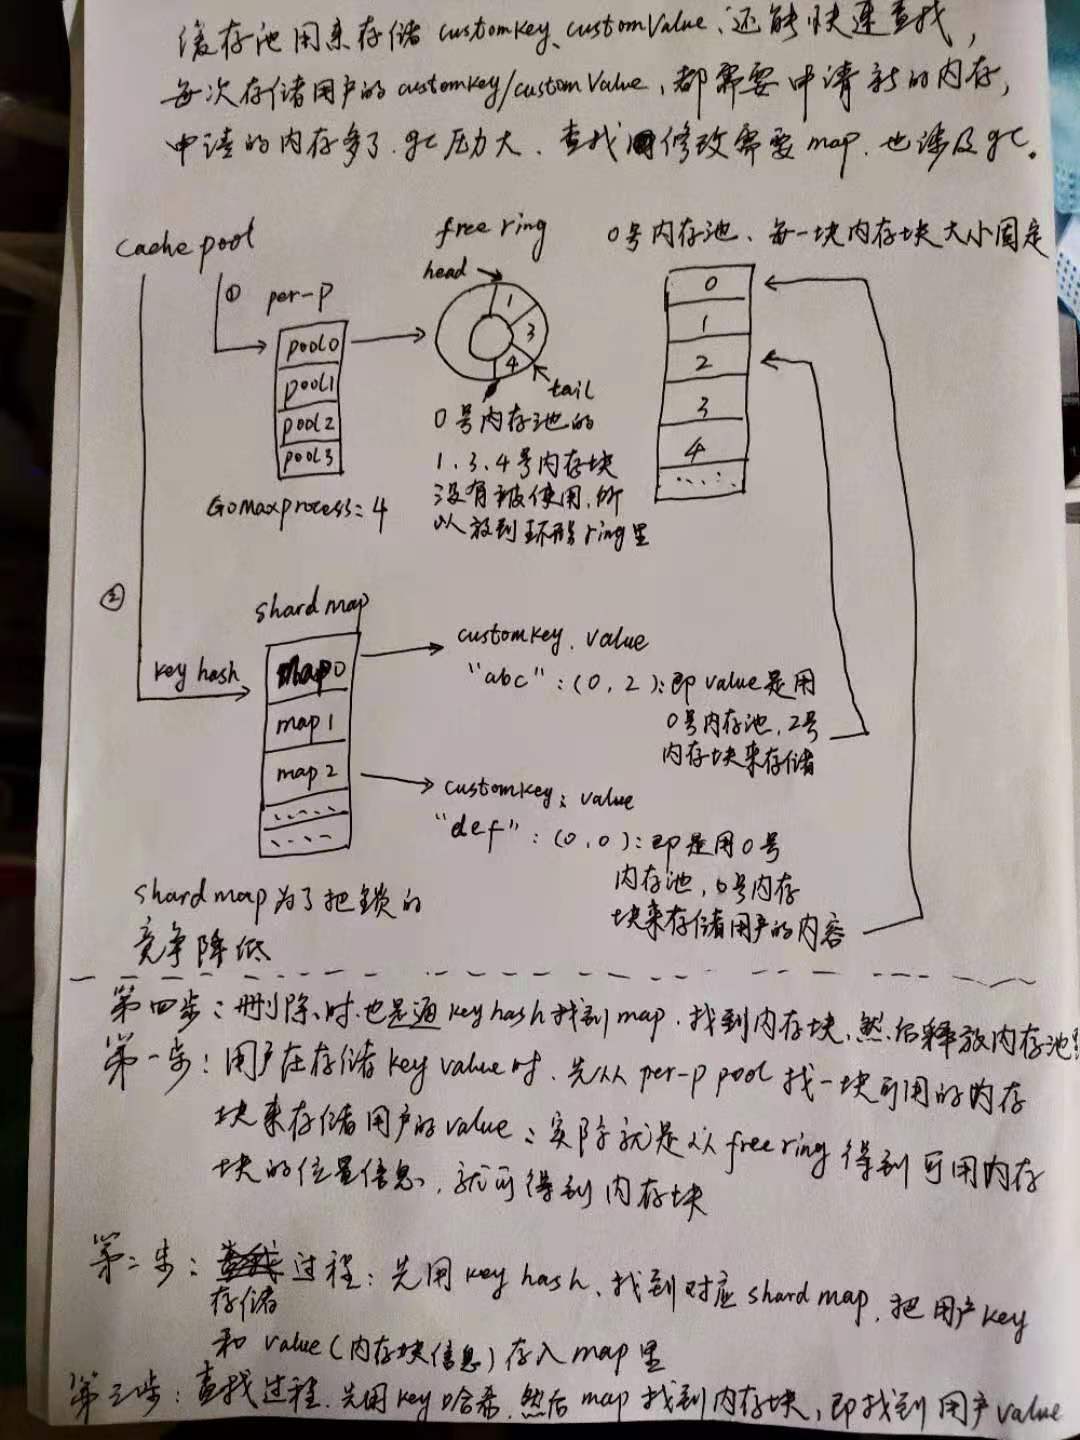 缓存池用来存储customkey、customValue、还能快速查找，
每次存储用户的customkey/customValue，都需要申请新的内存，
申请的内存多了.gc压力大、查找修改需要map.也涉及gc。
cache pool
①
per-p
pool0
pool1
pool2
pool3
Gomaxprocess=4
free ring
head
1
3
4
tail
0号内存池的
1.3.4号内存块
没有被使用.所
以放到环形ring里
0号内存池、每一块内存块大小固定
0
1
2
3
4
②
key hash
shard map
map0
map1
map2
customkey.value
"abc":(0,2):即value是用
0号内存池.2号
内存块来存储
customkey:value
"def":(0,0):即是用0号
内存池，0号内存
块来存储用户的内容
shard map为了把锁的
竞争降低
第四步：删除时.也是通key hash找到map.找到内存块.然后释放内存池
第一步：用户在存储key value时.先从per-p pool找一块可用的内存
块来存储用户的value：实际就是从free ring得到可用内存
块的位置信息.就可得到内存块
第二步：过程：先用key hash.找到对应shard map.把用户key
存储
和value(内存块信息)存入map里
第三步：查找过程.先用key哈希.然后map找到内存块，即找到用户value